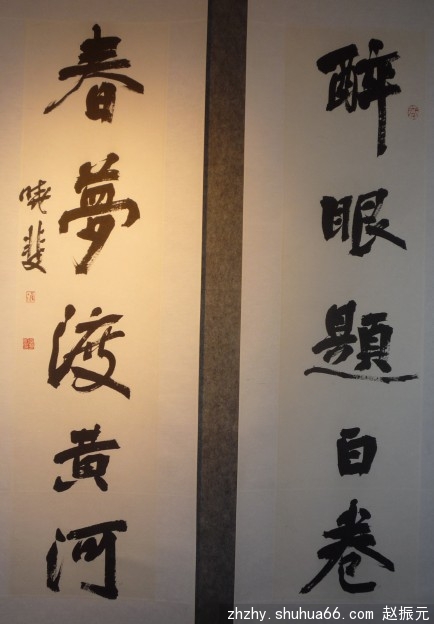 醉眼題白卷
春夢渡黃河
曉斐
zhzhy.shuhua66.com 赵振元